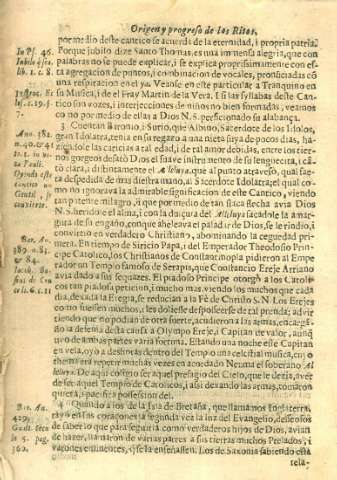 Origen y progreso de los Ritos,
por medio deste cantico se acuerda de la eternidad, i propria patria.
Porque jubilo dize Santo Thomas, es una immensa alegria, que con
palabras no se puede explicar, i se explica propriissimamente con es-
ta agregacion de puntos, i combinacion de vocales, pronũciadas cõ
una respiracion en el ya. Veanlo en este particular a Tranquino en
su Musica, i de el Fray Martin de la Vera. I si las syllabas deste Can-
tico son vozes, i interjecciones de niños no bien formadas, veamos
co no por medio de ellas a Dios N.S. perficionado su alabança.
3 Cuentan Baronio, i Surio, que Albino, Sacerdote de los Idolos,
gran Idolatra, tenia en su regaço a una nieta suya de pocos dias, ha-
ziendole las caricias a tal edad, i de tal amor debidas, entre los tier-
nos gorgeos desatò Dios el suave instrumento de su lenguecita, i cã-
tò clara, i distintamente el Alleluya, que al punto atravesò, qual sae-
ta despedida de mas diestra mano, al Sacerdote Idolatra; el qual co-
mo no ignorava la admirable significacion de este Cantico, viendo
tan potente milagro, i que por medio de tan flaca flecha avia Dios
N.S. heridole el alma, i con la dulçura del Alleluya sacadole la amar-
gura de su engaño, conque ahelcava el paladar de Dios, se le rindio, i
convirtio en verdadero Christiano, abominando la ceguedad pri-
mera. En tiempo de Siricio Papa, i del Emperador Theodosio Prin-
cipe Catolico, los Christianos de Constantinopla pidieron al Empe-
rador un Templo famoso de Serapis, que Constancio Ereje Arriano
avia dado a sus sequazes. El piadoso Principe otorgò a los Catoli-
cos tan piadosa peticion, i mucho mas, viendo los muchos que cada
dia, de cada la Eregia, se reducian a la Fè de Christo S. N. Los Erejes
como fuessen muchos, les doliesse desposseerse de tal prenda; advir-
tiendo que no podian de otra suerte, acudieron a las armas, encargã-
do la defensa desta causa a Olympo Ereje, i Capitan de valor, aunq̃
uvo de ambas partes varia fortuna. Estando una noche este Capitan
en vela, oyò a deshoras dentro del Templo una celestial musica, cuyo
thema era repetir muchas vezes en acordado Neuma el soberano Al-
leluya. De aqui coligio ser aquel prodigio del Cielo, que le dezia, ave-
de ser aquel Templo de Catolicos, i assi dexando las armas, tomaron
quieta, i pacifica possession del.
4 Quando a los de la Isla de Bretaña, que llamamos Inglaterra,
rayò en sus coraçones a segunda vez la luz del Evangelio, deseosos
de saber lo que para seguirla como verdaderos hijos de Dios, avian
de hazer, llamaron de varias partes a sus tierras muchos Prelados, i
varones eminentes, q̃ se la enseñassen. Los de Saxonia sabiendo esta
rela-
In Ps. 46.
lib. 1. c. 8.
Ann. 382.
Bar. An.
Bar. An.
429.
5. pag.
360.